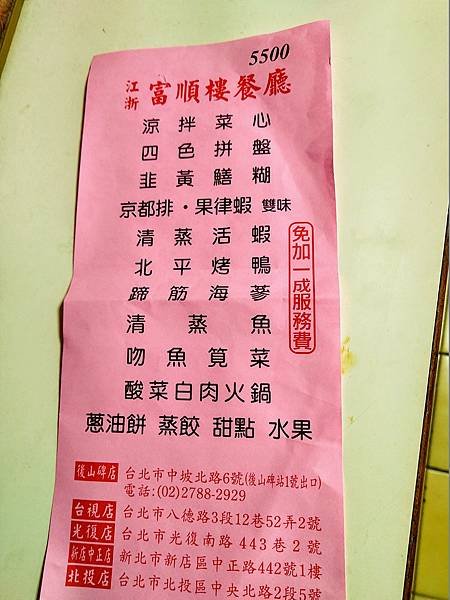 5500
江浙 富順樓餐廳
涼拌菜心
四色拼盤
韭黃鱔糊
京都排・果律蝦 雙味
清蒸活蝦
北平烤鴨
蹄筋海蔘
清蒸魚
吻魚莧菜
酸菜白肉火鍋
蔥油餅 蒸餃 甜點 水果
免加一成服務費
後山碑店 台北市中坡北路6號(後山碑站1號出口)
電話:(02)2788-2929
台視店 台北市八德路3段12巷52弄2號
光復店 台北市光復南路443巷2號
新店中正店 新北市新店區中正路442號1樓
北投店 台北市北投區中央北路2段5號